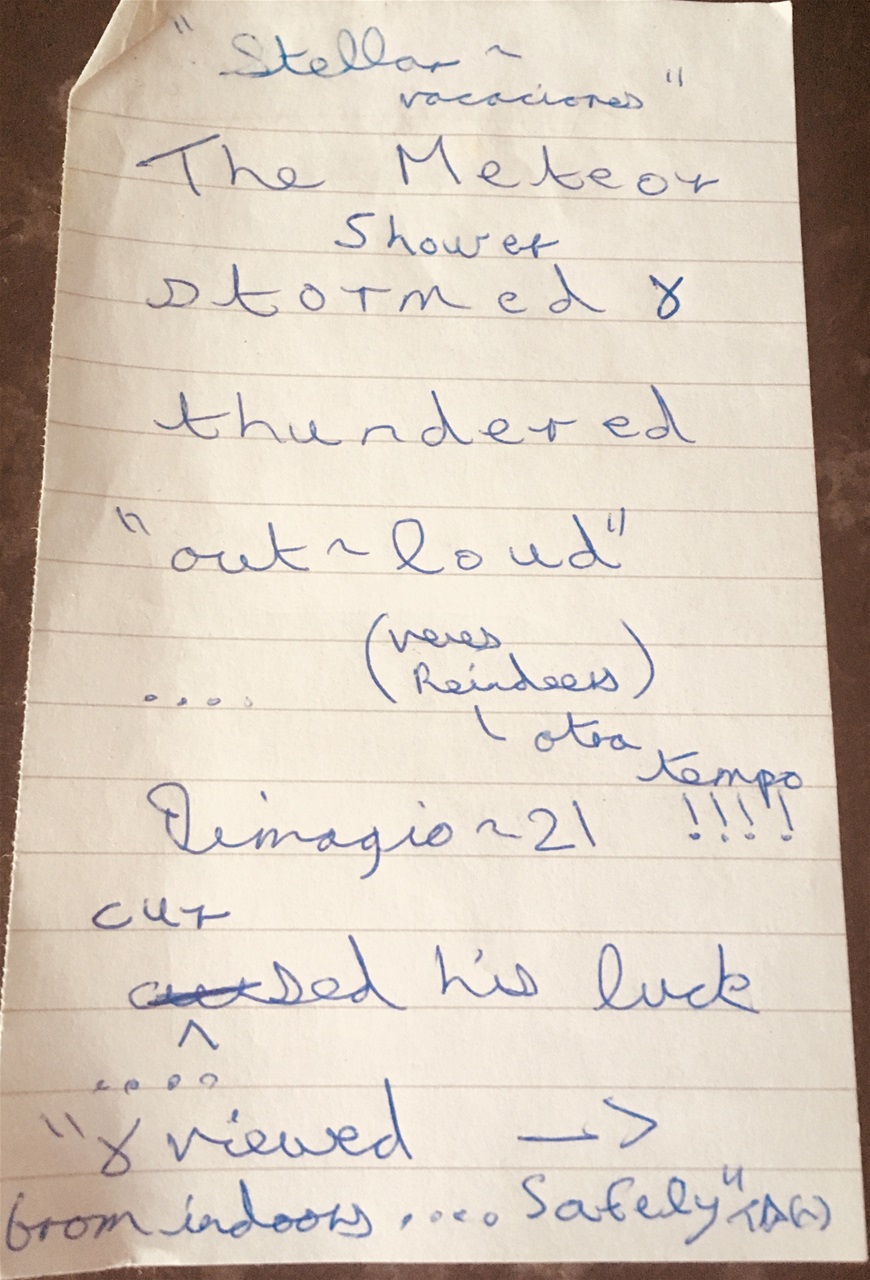 "Stellar ~
vacaciones"
The Meteor
Shower
stormed &
thundered
"out ~ loud"
(veres
Reindeers)
.... otra
tempo
Dimagio ~ 21 !!!!
cur
sed his luck
^
....
"& viewed →
from indoors .... Safely"